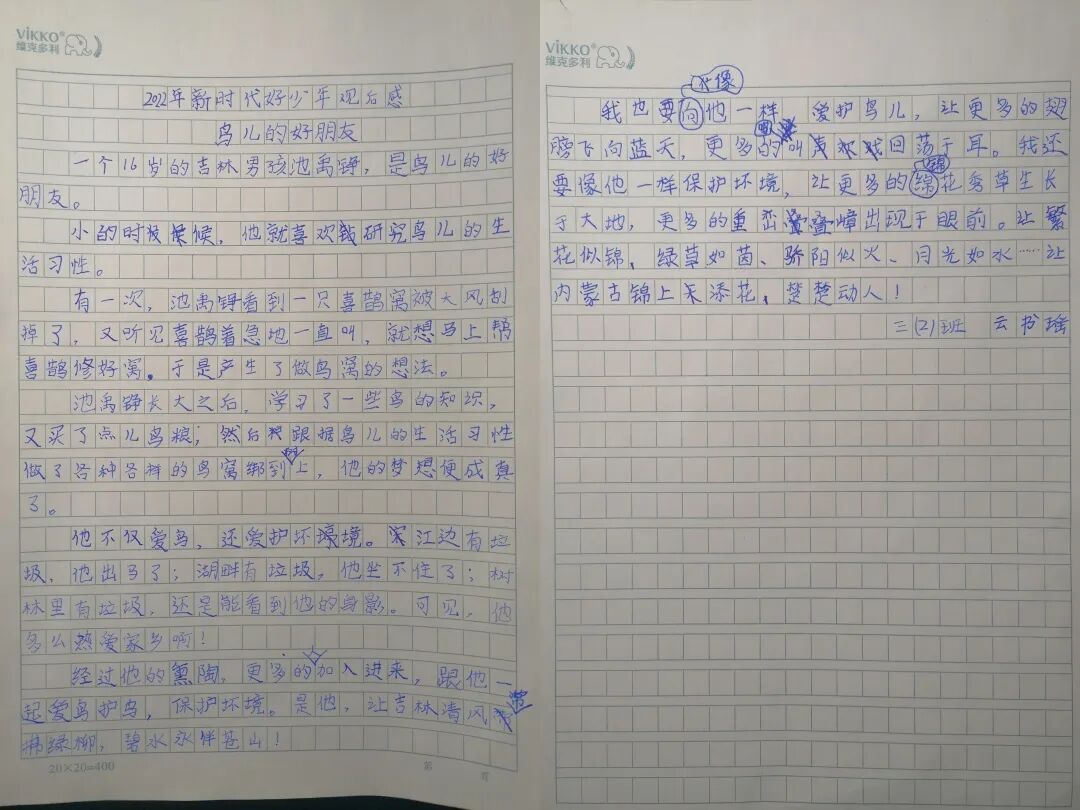 ViKKO®
维克多利
2022年新时代好少年观后感
鸟儿的好朋友
一个16岁的吉林男孩池禹铮,是鸟儿的好
朋友。
小的时候,他就喜欢研究鸟儿的生
活习性。
有一次,池禹铮看到一只喜鹊窝被大风刮
掉了,又听见喜鹊着急地一直叫,就想马上帮
喜鹊修好窝。于是产生了做鸟窝的想法。
池禹铮长大之后,学习了一些鸟的知识,
又买了点儿鸟粮;然后跟据鸟儿的生活习性
做了各种各样的鸟窝绑到树上,他的梦想便成真
了。
他不仅爱鸟,还爱护环境。江边有垃
圾,他出马了;湖畔有垃圾,他坐不住了;树
林里有垃圾,还是能看到他的身影。可见,他
多么热爱家乡啊!
经过他的熏陶,更多的加入进来,跟他一
起爱鸟护鸟,保护环境。是他,让吉林清风
拂绿柳,碧水永伴苍山!
20×20=400
第 页
ViKKO®
维克多利
像
我也要向他一样,爱护鸟儿,让更多的翅
膀飞向蓝天,更多的叫声回荡于耳。我还
要像他一样保护环境,让更多的绵花秀草生长
于大地,更多的重峦叠嶂出现于眼前。让繁
花似锦、绿草如茵、骄阳似火、月光如水……让
内蒙古锦上天添花,楚楚动人!
三(2)班 云书瑶